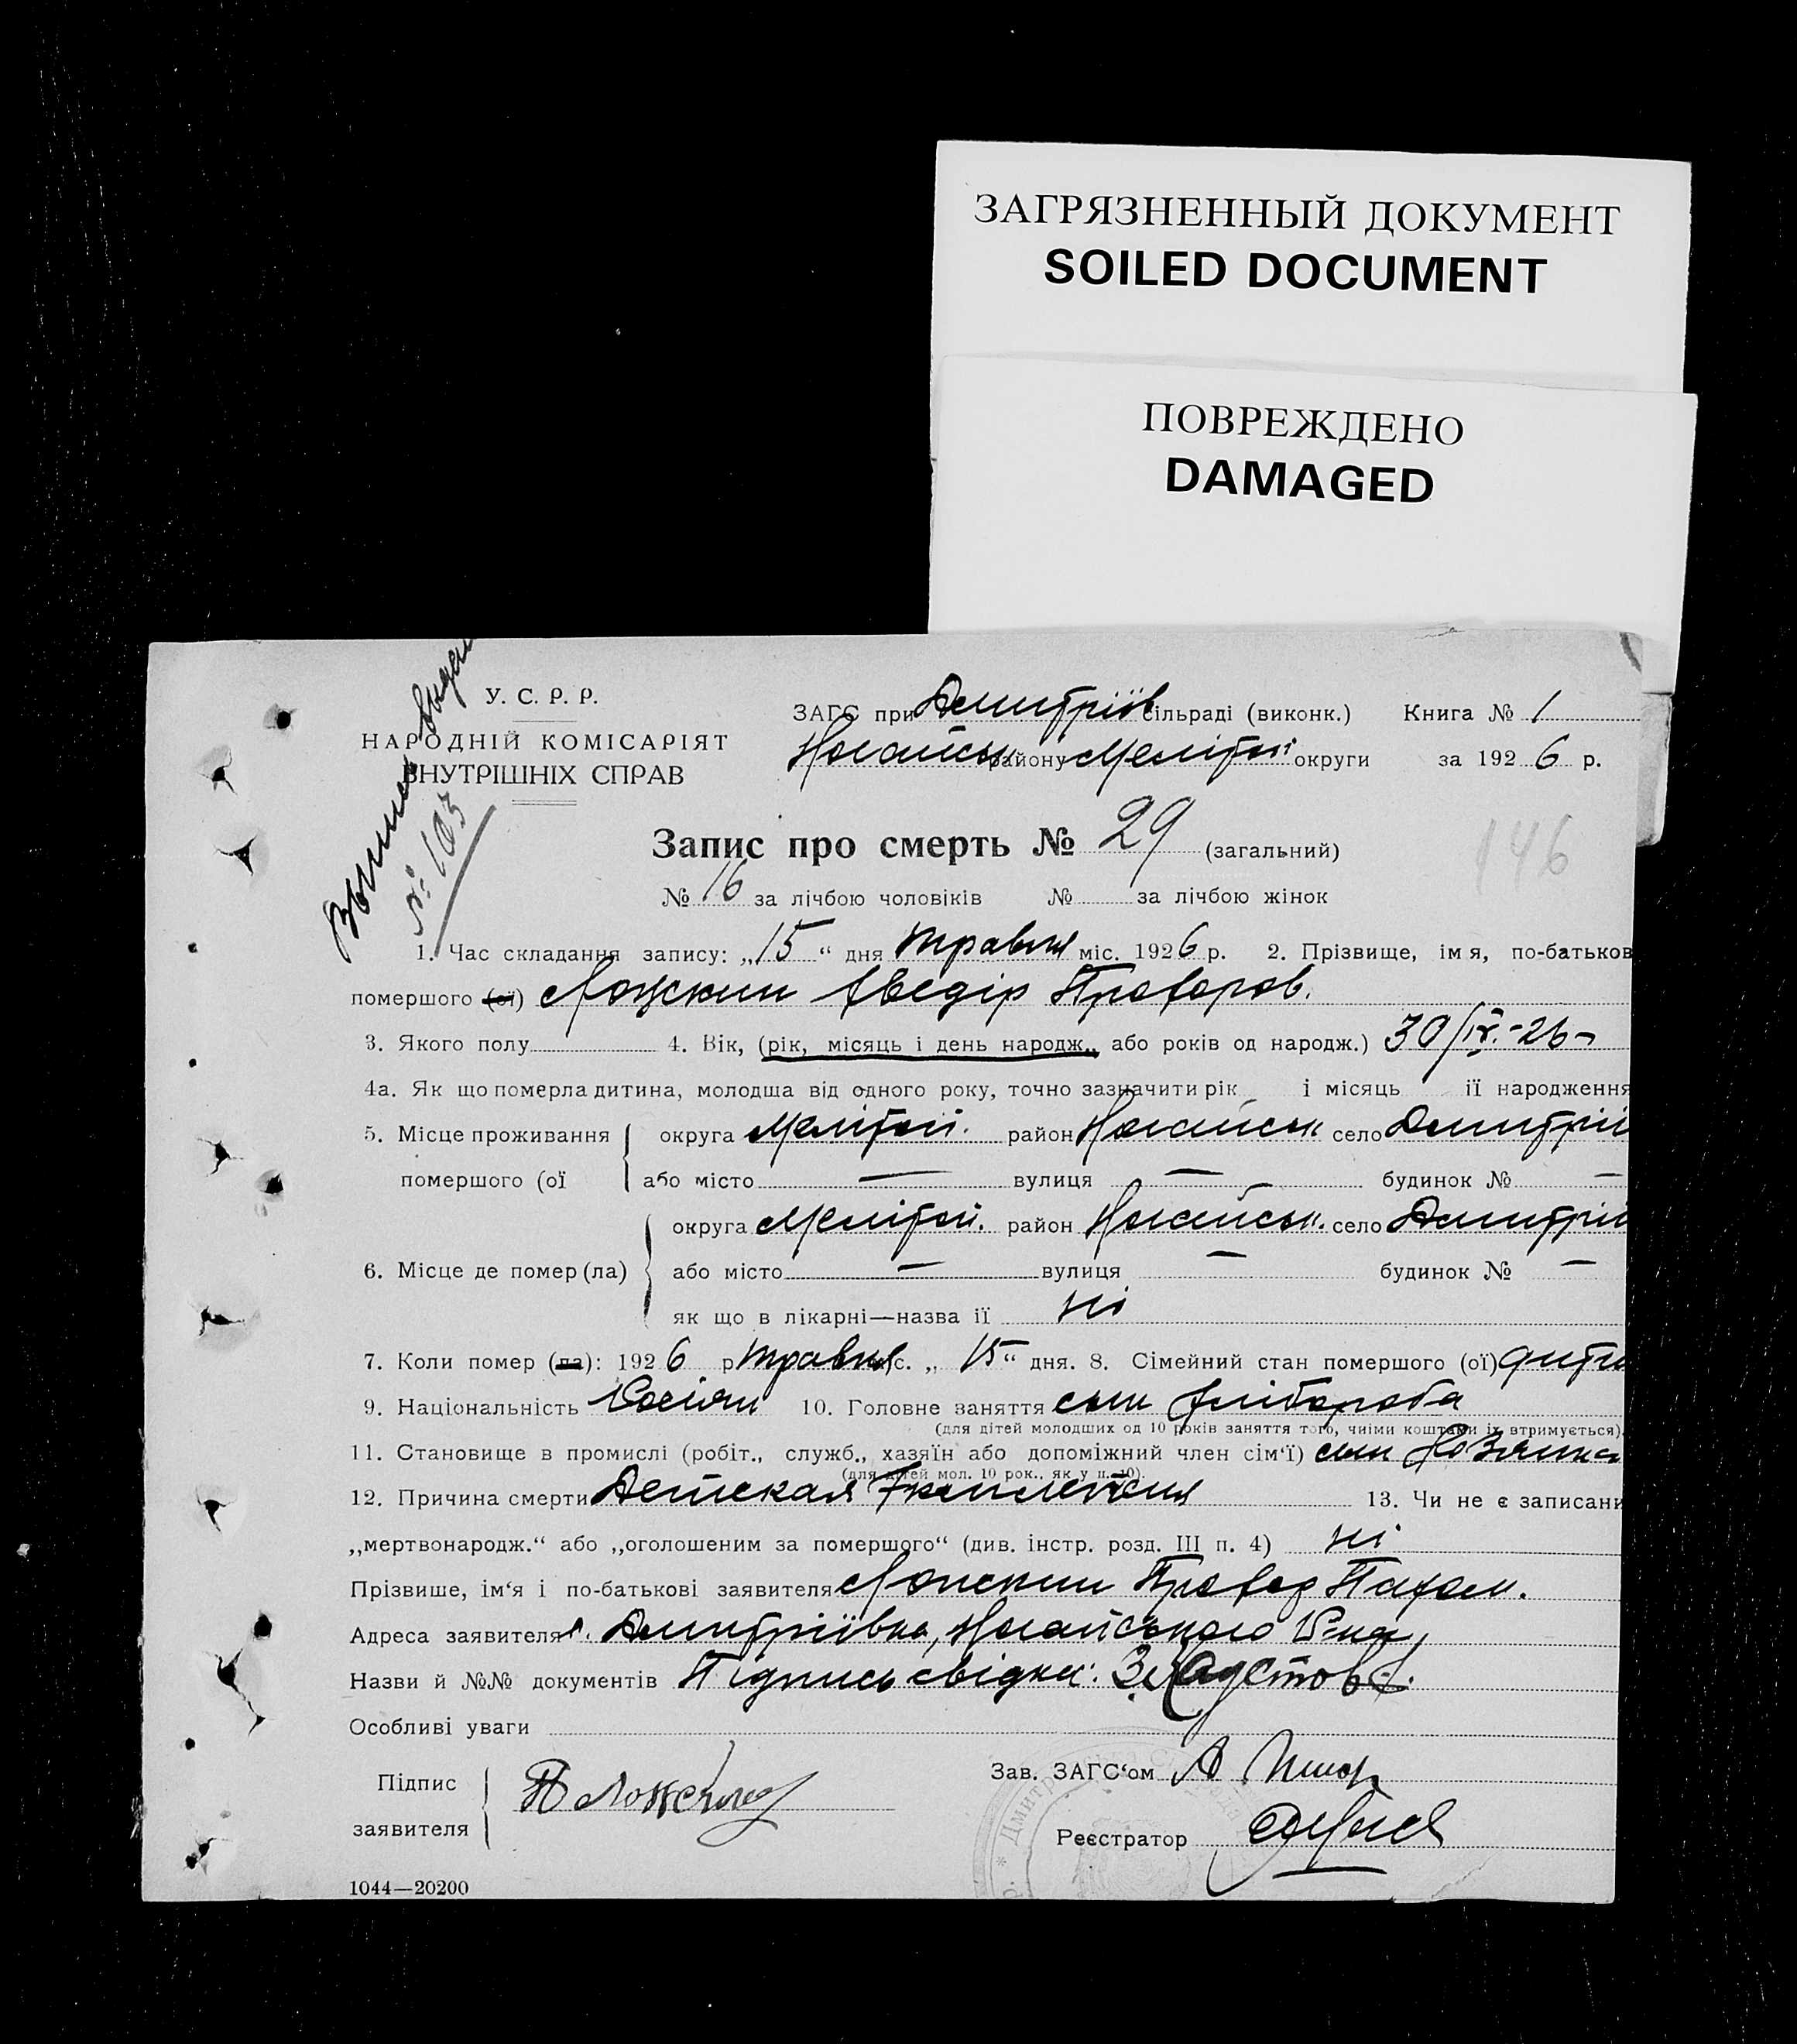 ЗАГРЯЗНЕННЫЙ ДОКУМЕНТ
SOILED DOCUMENT
ПОВРЕЖДЕНО
DAMAGED
У. С. Р. Р.
НАРОДНІЙ КОМІСАРІЯТ
ВНУТРІШНІХ СПРАВ
№ 103
ЗАГС при Дмитріїв сільраді (виконк.) Книга № 1
Ногайськ району Мелітоп округи за 1926 р.
Запис про смерть № 29 (загальний)
146
№ 16 за лічбою чоловіків № за лічбою жінок
1. Час складання запису: „15“ дня травня міс. 1926 р. 2. Прізвище, імя, по-батьков
помершого (ої)
3. Якого полу 4. Вік, (рік, місяць і день народж., або років од народж.) 30/IV.-26-
4а. Як що померла дитина, молодша від одного року, точно зазначити рік і місяць її народження
5. Місце проживання округа Мелітоп. район Ногайськ село Дмитрії
помершого (ої або місто — вулиця — будинок № —
округа Мелітоп. район Ногайськ. село Дмитрії
6. Місце де помер (ла) або місто — вулиця — будинок № —
як що в лікарні—назва її ні
7. Коли помер (ла): 1926 р травня міс. „15“ дня. 8. Сімейний стан помершого (ої) дити
9. Національність 10. Головне заняття сын хлібороба
(для дітей молодших од 10 років заняття того, чиїми коштами їх втримується)
11. Становище в промислі (робіт., служб., хазяїн або допоміжний член сім‘ї) сын
(для дітей мол. 10 рок., як у п. 10).
12. Причина смерти Детская 13. Чи не є записани
„мертвонародж.“ або „оголошеним за помершого“ (див. інстр. розд. III п. 4) ні
Прізвише, ім‘я і по-батькові заявителя
Адреса заявителя с. Дмитріївка, Ногайського Р-на,
Назви й №№ документів Підпись свідка:
Особливі уваги
Підпис Зав. ЗАГС‘ом
заявителя Реєстратор
1044—20200